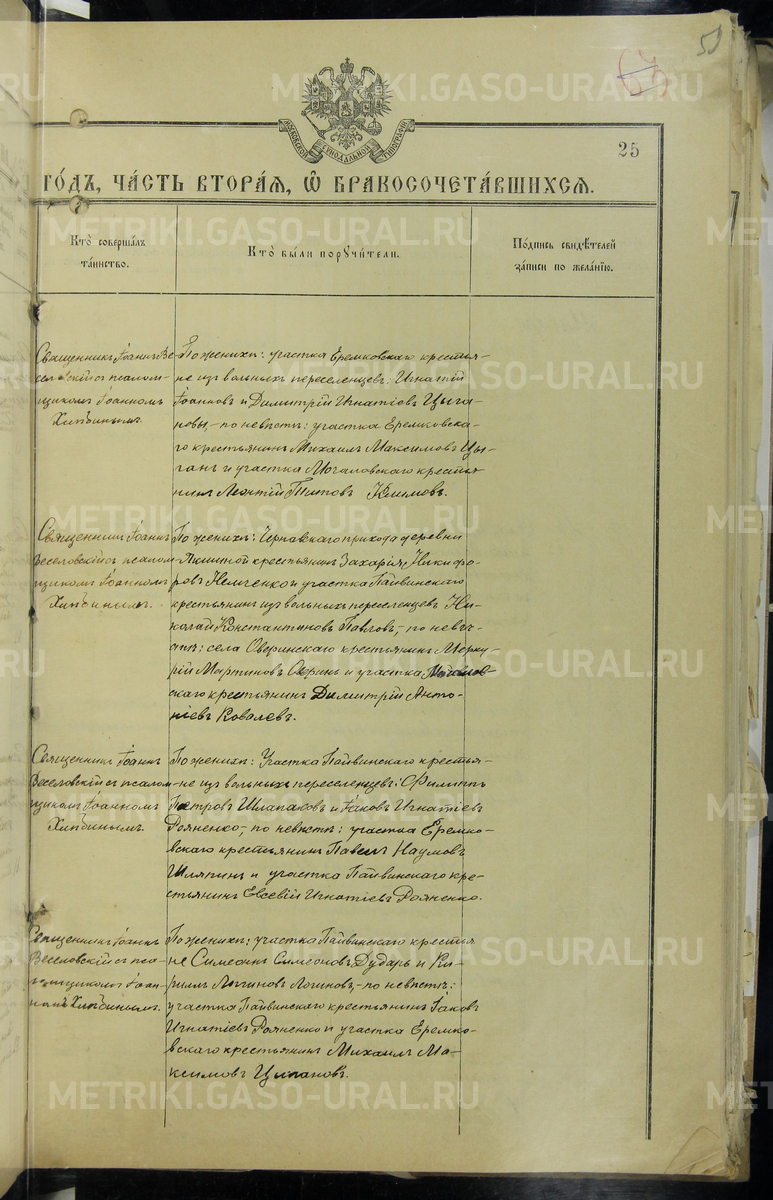 50
63
МОСКОВСКОЙ СѴНОДАЛЬНОЙ ТИПОГРАФІИ
25
ГО́ДЪ, ЧА́СТЬ ВТОРА́Я, Ѡ҆ БРАКОСОЧЕТА́ВШИХСЯ.
Кто̀ соверша́лъ
та́инство.
Кто̀ бы́ли порꙋчи́тели.
По́дпись свидѣ́телей
за́писи по жела́нїю.
Священникъ Іоаннъ Ве-
селовскій съ псалом-
щикомъ Іоанномъ
Хипбинымъ.
По женихѣ: участка Еремковскаго крестья-
не изъ вольныхъ переселенцевъ: Игнатій
Іоанновъ и Димитрій Игнатіевъ Цыга-
новы, – по невѣстѣ: участка Еремковска-
го крестьянинъ Михаилъ Максимовъ Цы-
ганъ и участка Могаловскаго крестья-
нинъ Леонтій Титовъ Климовъ.
Священникъ Іоаннъ
Веселовскій съ псалом-
щикомъ Іоанномъ
Хипбинымъ.
По женихѣ: Чернавскаго прихода деревни
Якшиной крестьянинъ Захарія Никифо-
ровъ Немченко и участка Пайвинскаго
крестьянинъ изъ вольныхъ переселенцевъ Ни-
колай Константиновъ Павловъ, – по невѣ-
стѣ: села Оверинскаго крестьянинъ Мерку-
рій Мартиновъ Оверинъ и участка
скаго крестьянинъ Димитрій Анто-
ніевъ Ковалевъ.
Священникъ Іоаннъ
Веселовскій съ псалом-
щикомъ Іоанномъ
Хипбинымъ.
По женихѣ: Участка Пайвинскаго крестья-
не изъ вольныхъ переселенцевъ: Филиппъ
Петровъ Шлапаковъ и Іаковъ Игнатіевъ
Рояненко, – по невѣстѣ: участка Еремко-
вскаго крестьянинъ Павелъ Наумовъ
Шляпинъ и участка Пайвинскаго кре-
стьянинъ Евсевій Игнатіевъ Рояненко.
Священникъ Іоаннъ
Веселовскій съ пса-
ломщикомъ Іоан-
номъ Хипбинымъ.
По женихѣ: участка Пайвинскаго крестья
не Симеонъ Симеоновъ Дударь и Ки-
риллъ Логиновъ Логиновъ, – по невѣстѣ:
участка Пайвинскаго крестьянинъ Іаковъ
Игнатіевъ Рояненко и участка Еремко-
вскаго крестьянинъ Михаилъ Ма-
ксимовъ Цыгановъ.
METRIKI.GASO-URAL.RU